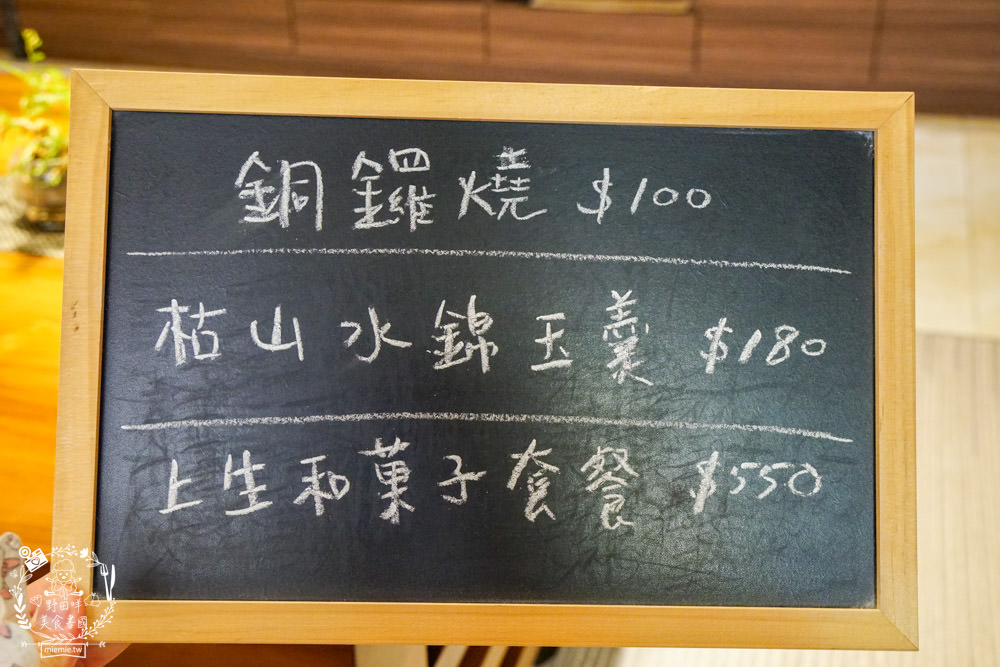 銅鑼燒 $100
枯山水錦玉羹 $180
上生和菓子套餐 $550
野田咩
美食書國
miemie.tw